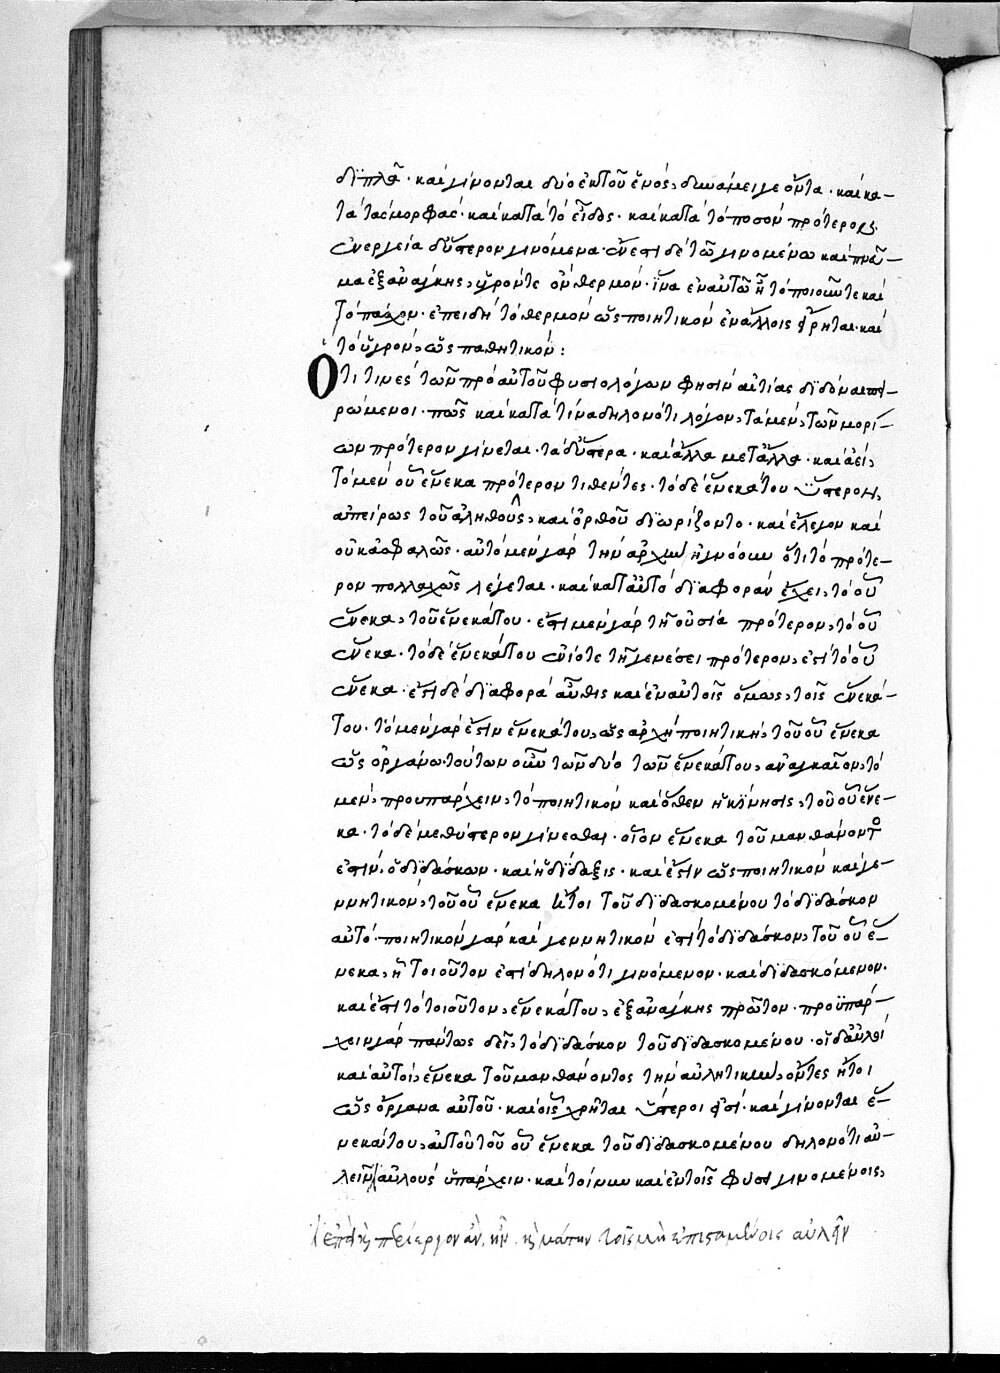 διπλᾶ · καὶ γίνονται δύο ἐκ τοῦ ἑνός, δυνάμει γε ὄντα · καὶ κα-
τὰ τὰς μορφάς · καὶ κατὰ τὸ εἶδος · καὶ κατὰ τὸ ποσὸν πρότερον ·
ἐνεργεία δεύτερον γινόμενα · ἔνεστι δὲ τῶ γινομένω καὶ πνεῦ-
μα ἐξανάγκης, ὑγρόντε ὂν θερμόν · ἵνα ἐν αὐτῶ ἦ τὸ ποιοῦν τε καὶ
τὸ πάσχον · ἐπειδὴ τὸ θερμὸν ὡς ποιητικὸν ἐν ἄλλοις εἴρηται · καὶ
τὸ ὑγρὸν, ὡς παθητικόν :
Ὅτι τινὲς τῶν πρὸ αὐτοῦ φυσιολόγων φησὶν αἰτίας διδόναι πει-
ρώμενοι · πῶς καὶ κατὰ τίνα δηλονότι λόγον, τὰ μὲν, τῶν μορί-
ων πρότερον γίνεται · τὰ δ' ὕστερα · καὶ ἄλλα μετ' ἄλλα · καὶ ἀεὶ,
τὸ μὲν οὗ ἕνεκα πρότερον τιθέντες · τὸ δὲ ἕνεκά του ὕστερον,
ἀπείρως τοῦ ἀληθοῦς, καὶ ὀρθοῦ διωρίζοντο · καὶ ἔλεγον καὶ
οὐκ ἀσφαλῶς · αὐτὸ μὲν γὰρ τὴν ἀρχὴν ἠγνόουν ὅτι τὸ πρότε-
ρον πολλαχῶς λέγεται · καὶ κατ' αὐτὸ διαφορὰν ἔχει, τὸ οὗ
ἕνεκα, τοῦ ἕνεκάτου · ἔστι μὲν γὰρ τῆ οὐσία πρότερον, τὸ οὗ
ἕνεκα · τὸ δὲ ἕνεκάτου ἐνίοτε τῆ γενέσει πρότερον, ἐστὶ τὸ οὗ
ἕνεκα · ἔστι δὲ διαφορὰ αὖθις καὶ ἐν αὐτοῖς ὅμως, τοῖς ἕνεκά-
του · τὸ μὲν γὰρ ἐστὶν ἕνεκά του, ὡς ἀρχὴ ποιητικὴ, τοῦ οὗ ἕνεκα
ὡς ὀργάνω · τούτων οὖν τῶν δύο τῶν ἕνεκάτου, ἀναγκαῖον, τὸ
μὲν, προυπάρχειν, τὸ ποιητικὸν καὶ ὅθεν ἡ κίνησις, τοῦ οὗ ἕνε-
κα · τὸ δὲ μεθύστερον γίνεσθαι · οἷον ἕνεκα τοῦ μανθάνοντος
ἐστὶν, ὁ διδάσκων · καὶ ἡ δίδαξις · καὶ ἐστὶν ὡς ποιητικὸν καὶ γε-
ννητικὸν, τοῦ οὗ ἕνεκα ἤτοι τοῦ διδασκομένου τὸ διδάσκον
αὐτό · ποιητικὸν γὰρ καὶ γεννητικόν ἐστὶ τὸ διδάσκον, τοῦ οὗ ἕ-
νεκα, ἧ τοιοῦτον ἐστὶ δηλονότι γινόμενον · καὶ διδασκόμενον ·
καὶ ἔστι τὸ τοιοῦτον, ἕνεκάτου, ἐξανάγκης πρῶτον · προϋπάρ-
χειν γὰρ πάντως δεῖ, τὸ διδάσκον τοῦ διδασκομένου · οἱ δ' αὐλοὶ
καὶ αὐτοὶ, ἕνεκα τοῦ μανθάνοντος τὴν αὐλητικὴν, ὄντες ἤτοι
ὡς ὄργανα αὐτοῦ · καὶ οἷς χρῆται ὕστεροί εἰσι · καὶ γίνονται ἕ-
νεκάτου, αὐτοῦ τοῦ οὗ ἕνεκα τοῦ διδασκομένου δηλονότι αὐ-
λεῖν αὐλοὺς ὑπάρχειν · καὶ τοίνυν καὶ ἐν τοῖς φύσει γινομένοις,
περίεργον ἂν ἦν καὶ μάτην τοῖς μὴ ἐπισταμένοις αὐλεῖν